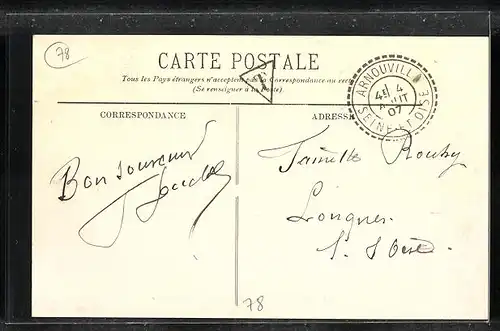 78
CARTE POSTALE
Tous les Pays étrangers n'acceptent pas la Correspondance au recto
(Se renseigner à la Poste)
ARNOUVILLE
4E 4
AOUT
07
SEINE-ET-OISE
CORRESPONDANCE
ADRESSE
Bon souvenir
Famille Rouhy
Longnes
S. s Oise.
78